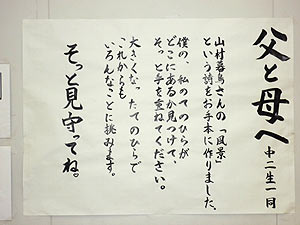 父と母へ
中二生一同
山村暮鳥さんの「風景」
という詩をお手本に作りました。
僕の、私のてのひらが
どこにあるか見つけて、
そっと手を重ねてください。
大きくなったてのひらで
これからも
いろんなことに挑みます。
そっと見守ってね。